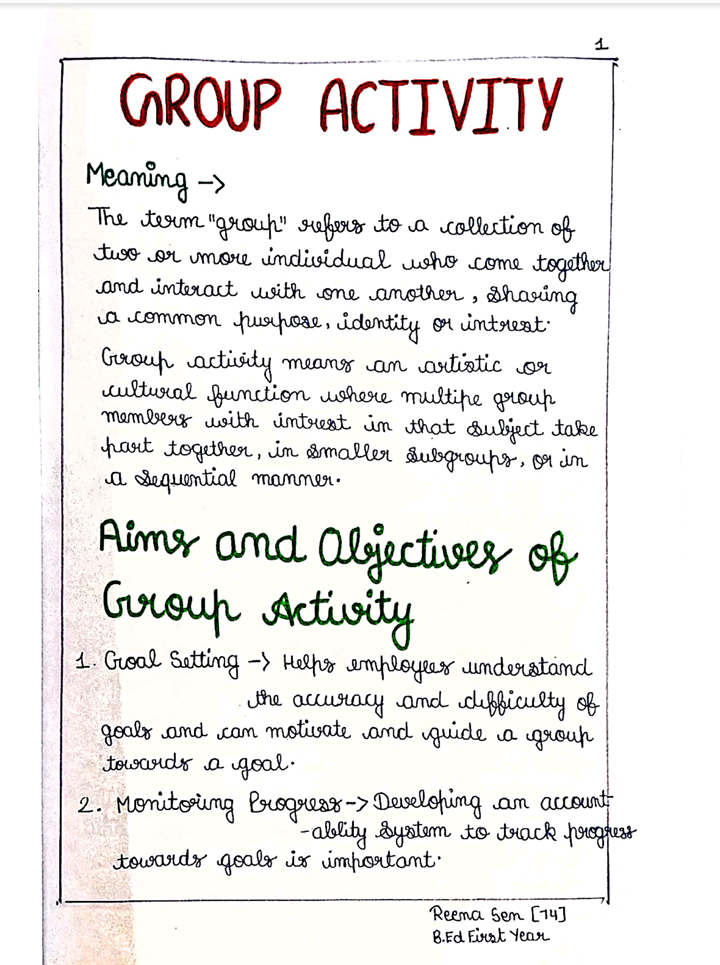 1
GROUP ACTIVITY
Meaning ->
The term "group" refers to a collection of
two or more individual who come together
and interact with one another, sharing
a common purpose, identity or intrest.
Group activity means an artistic or
cultural function where multipe group
members with intrest in that subject take
part together, in smaller subgroups, or in
a sequential manner.
Aims and Objectives of
Group Activity
1. Goal Setting -> Helps employees understand
the accuracy and difficulty of
goals and can motivate and guide a group
towards a goal.
2. Monitoring Progress -> Developing an account-
-ablity system to track progress
towards goals is important.
Reena Sen [74]
B.Ed First Year